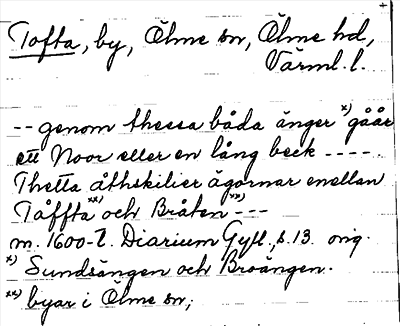 Tofta, by, Ölme sn, Ölme hd,
Värml. l.
-- genom thessa båda änger x) gåår
ett Noor eller en lång beck ----
Thetta åthskilier ägornar emellan
Tåffta xx) och Bråten xx) ---
m. 1600-t. Diarium Gyll. s. 13. orig.
x) Sundsängen och Broängen.
xx) byar i Ölme sn;